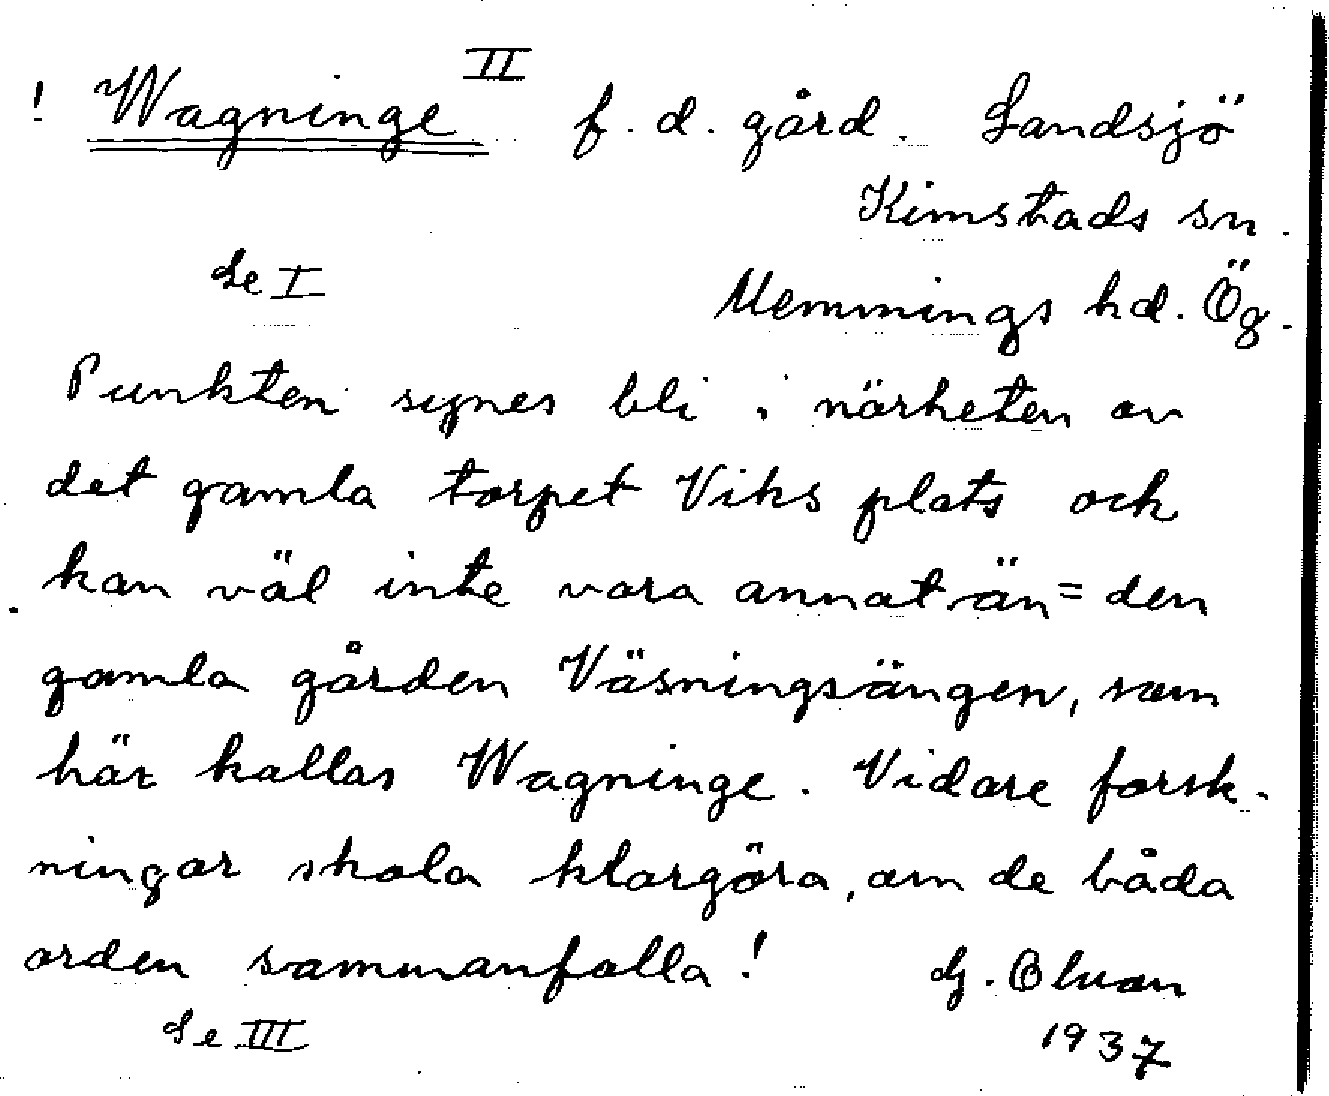 ! Wagninge II f. d. gård. Landsjö
Kimstads sn.
Se I Memmings hd. Ög.
Punkten synes bli i närheten av
det gamla torpet Viks plats och
kan väl inte vara annat än = den
gamla gården Väsningsängen, som
här kallas Wagninge. Vidare forsk-
ningar skola klargöra, om de båda
orden sammanfalla! G.
Se III 1937